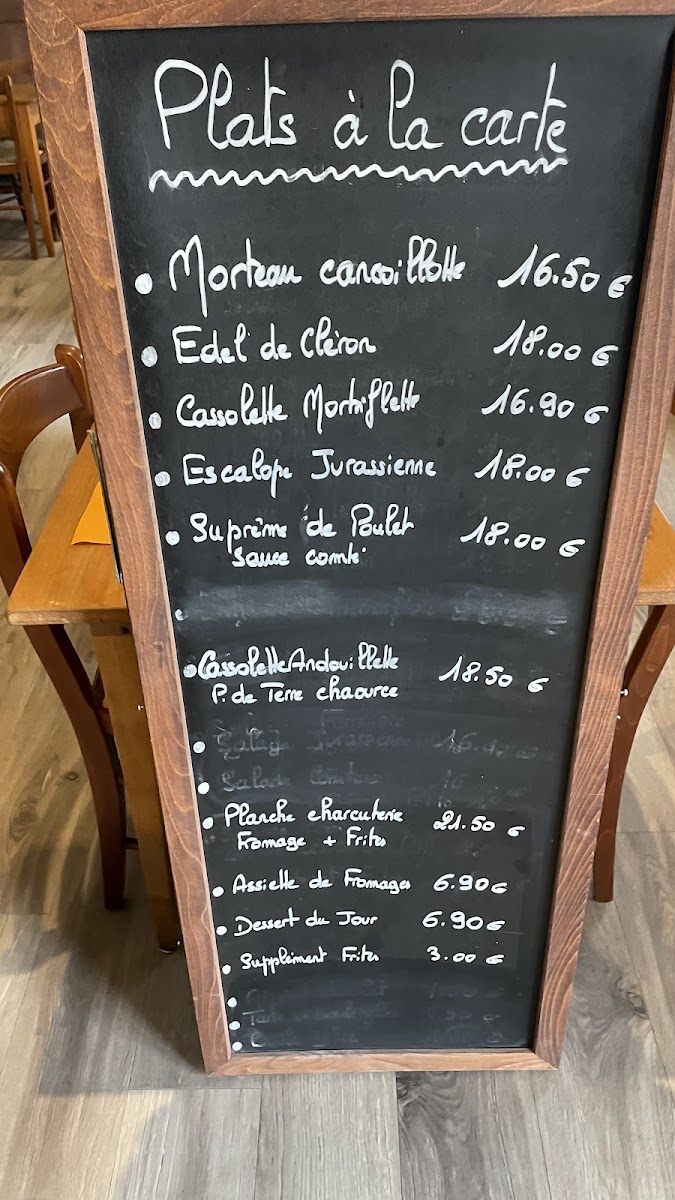 Plats à la carte
Morteau cancoillotte 16.50 €
Edel de Cléron 18.00 €
Cassolette Mortiflette 16.90 €
Escalope Jurassienne 18.00 €
Suprême de Poulet 18.00 €
Sauce comté
Cassolette Andouillette 18.50 €
P. de Terre chaource
Salade Jurassienne
Salade
Planche charcuterie 21.50 €
Fromage + Frites
Assiette de Fromages 6.90 €
Dessert du Jour 6.90 €
Supplément Frites 3.00 €